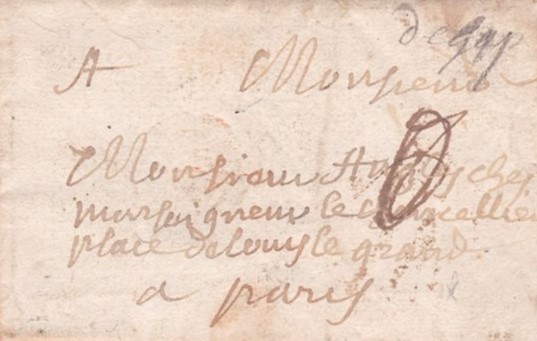 de Gap
A Monsieur
Monsieur chez
monseigneur le chancellier
place de louis le grand
a paris